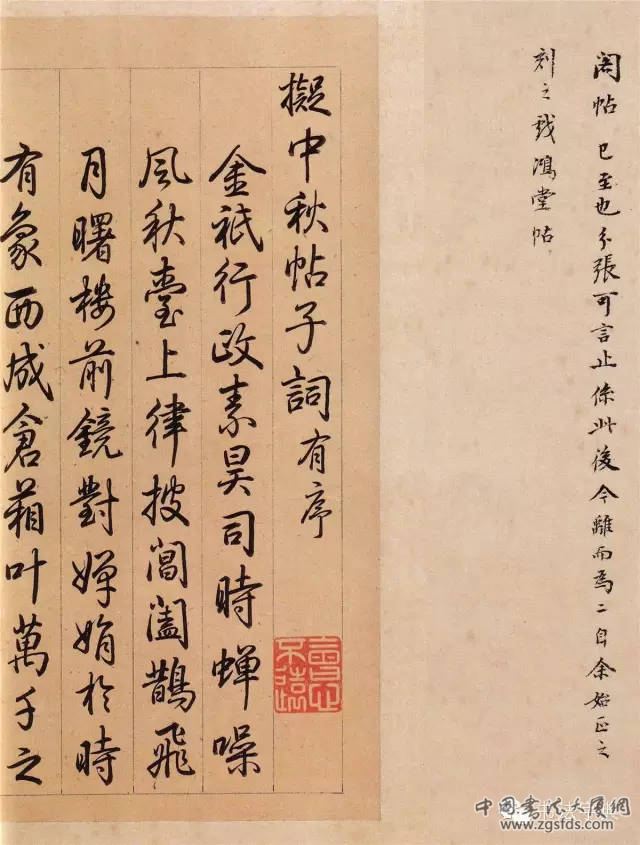 閣帖 已至也分張可言止係此後今離而為二自余始正之
刻之戲鴻堂帖
擬中秋帖子詞有序
金祇行政素昊司時蟬噪
風秋臺上律披閶闔鵲飛
月曙樓前鏡對嬋娟於時
有象西成倉葙叶萬千之
中国书法大厦网
www.zgsfds.com